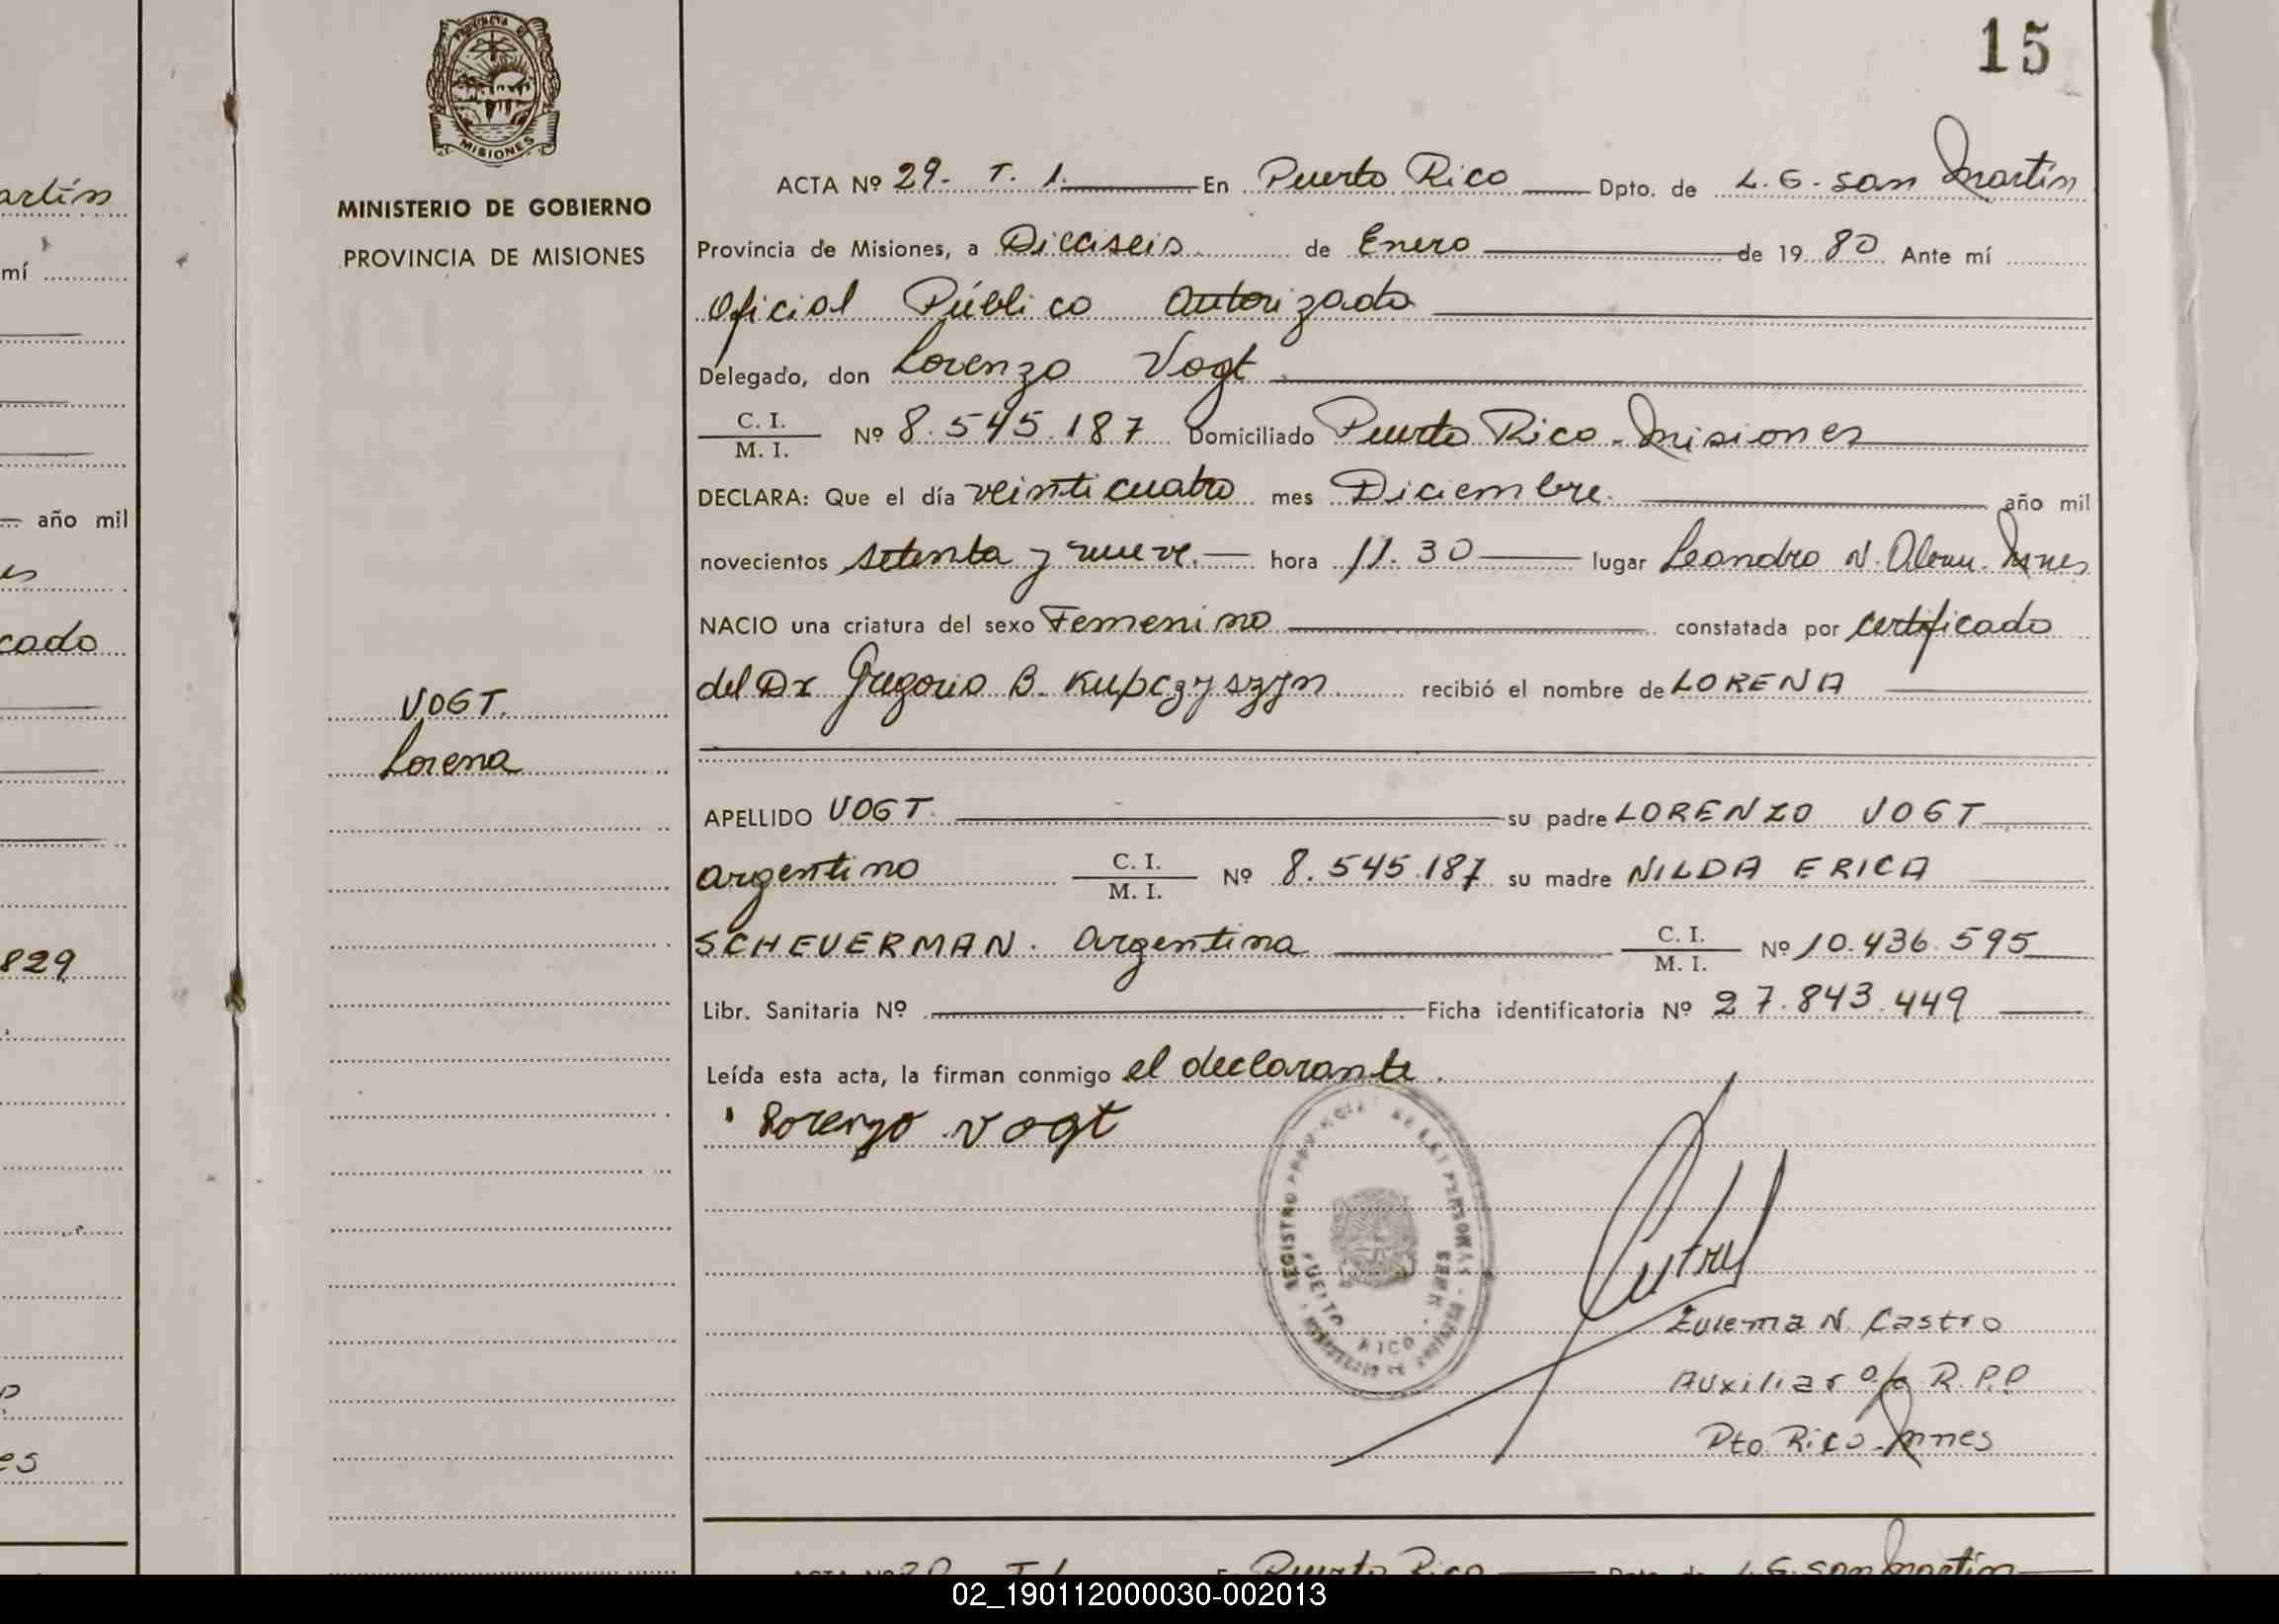 15
PROVINCIA DE
MISIONES
MINISTERIO DE GOBIERNO
PROVINCIA DE MISIONES
VOGT.
Lorena
ACTA Nº 29. T. 1. En Puerto Rico Dpto. de L. G. San Martín
Provincia de Misiones, a Dieciseis de Enero de 1980 Ante mí
Oficial Público Autorizado
Delegado, don Lorenzo Vogt
C. I.
M. I. Nº 8.545.187 Domiciliado Puerto Rico - Misiones
DECLARA: Que el día veinticuatro mes Diciembre. año mil
novecientos setenta y nueve. hora 11.30 lugar Leandro N. Alem. Mnes
NACIO una criatura del sexo Femenino constatada por certificado
del Dr Gregorio B. Kupczyszyn recibió el nombre de LORENA
APELLIDO VOGT. su padre LORENZO VOGT
argentino C. I.
M. I. Nº 8.545.187 su madre NILDA ERICA
SCHEUERMAN. Argentina C. I.
M. I. Nº 10.436.595
Libr. Sanitaria Nº Ficha identificatoria Nº 27.843.449
Leída esta acta, la firman conmigo el declarante.
Lorenzo Vogt
PUERTO RICO
Zulema N. Castro
Auxiliar o/c R.P.P
Pto Rico - Mnes
artín
mí
año mil
es
cado
829
es
Puerto Rico L. G. San Martín
02_190112000030-002013